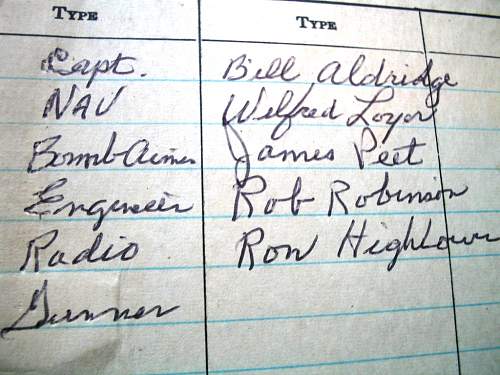 TYPE TYPE
Capt. Bill Aldridge
NAV Wilfred Loyor
Bomb-Aimer James Peet
Engineer Rob Robinson
Radio Ron Hightower
Gunner